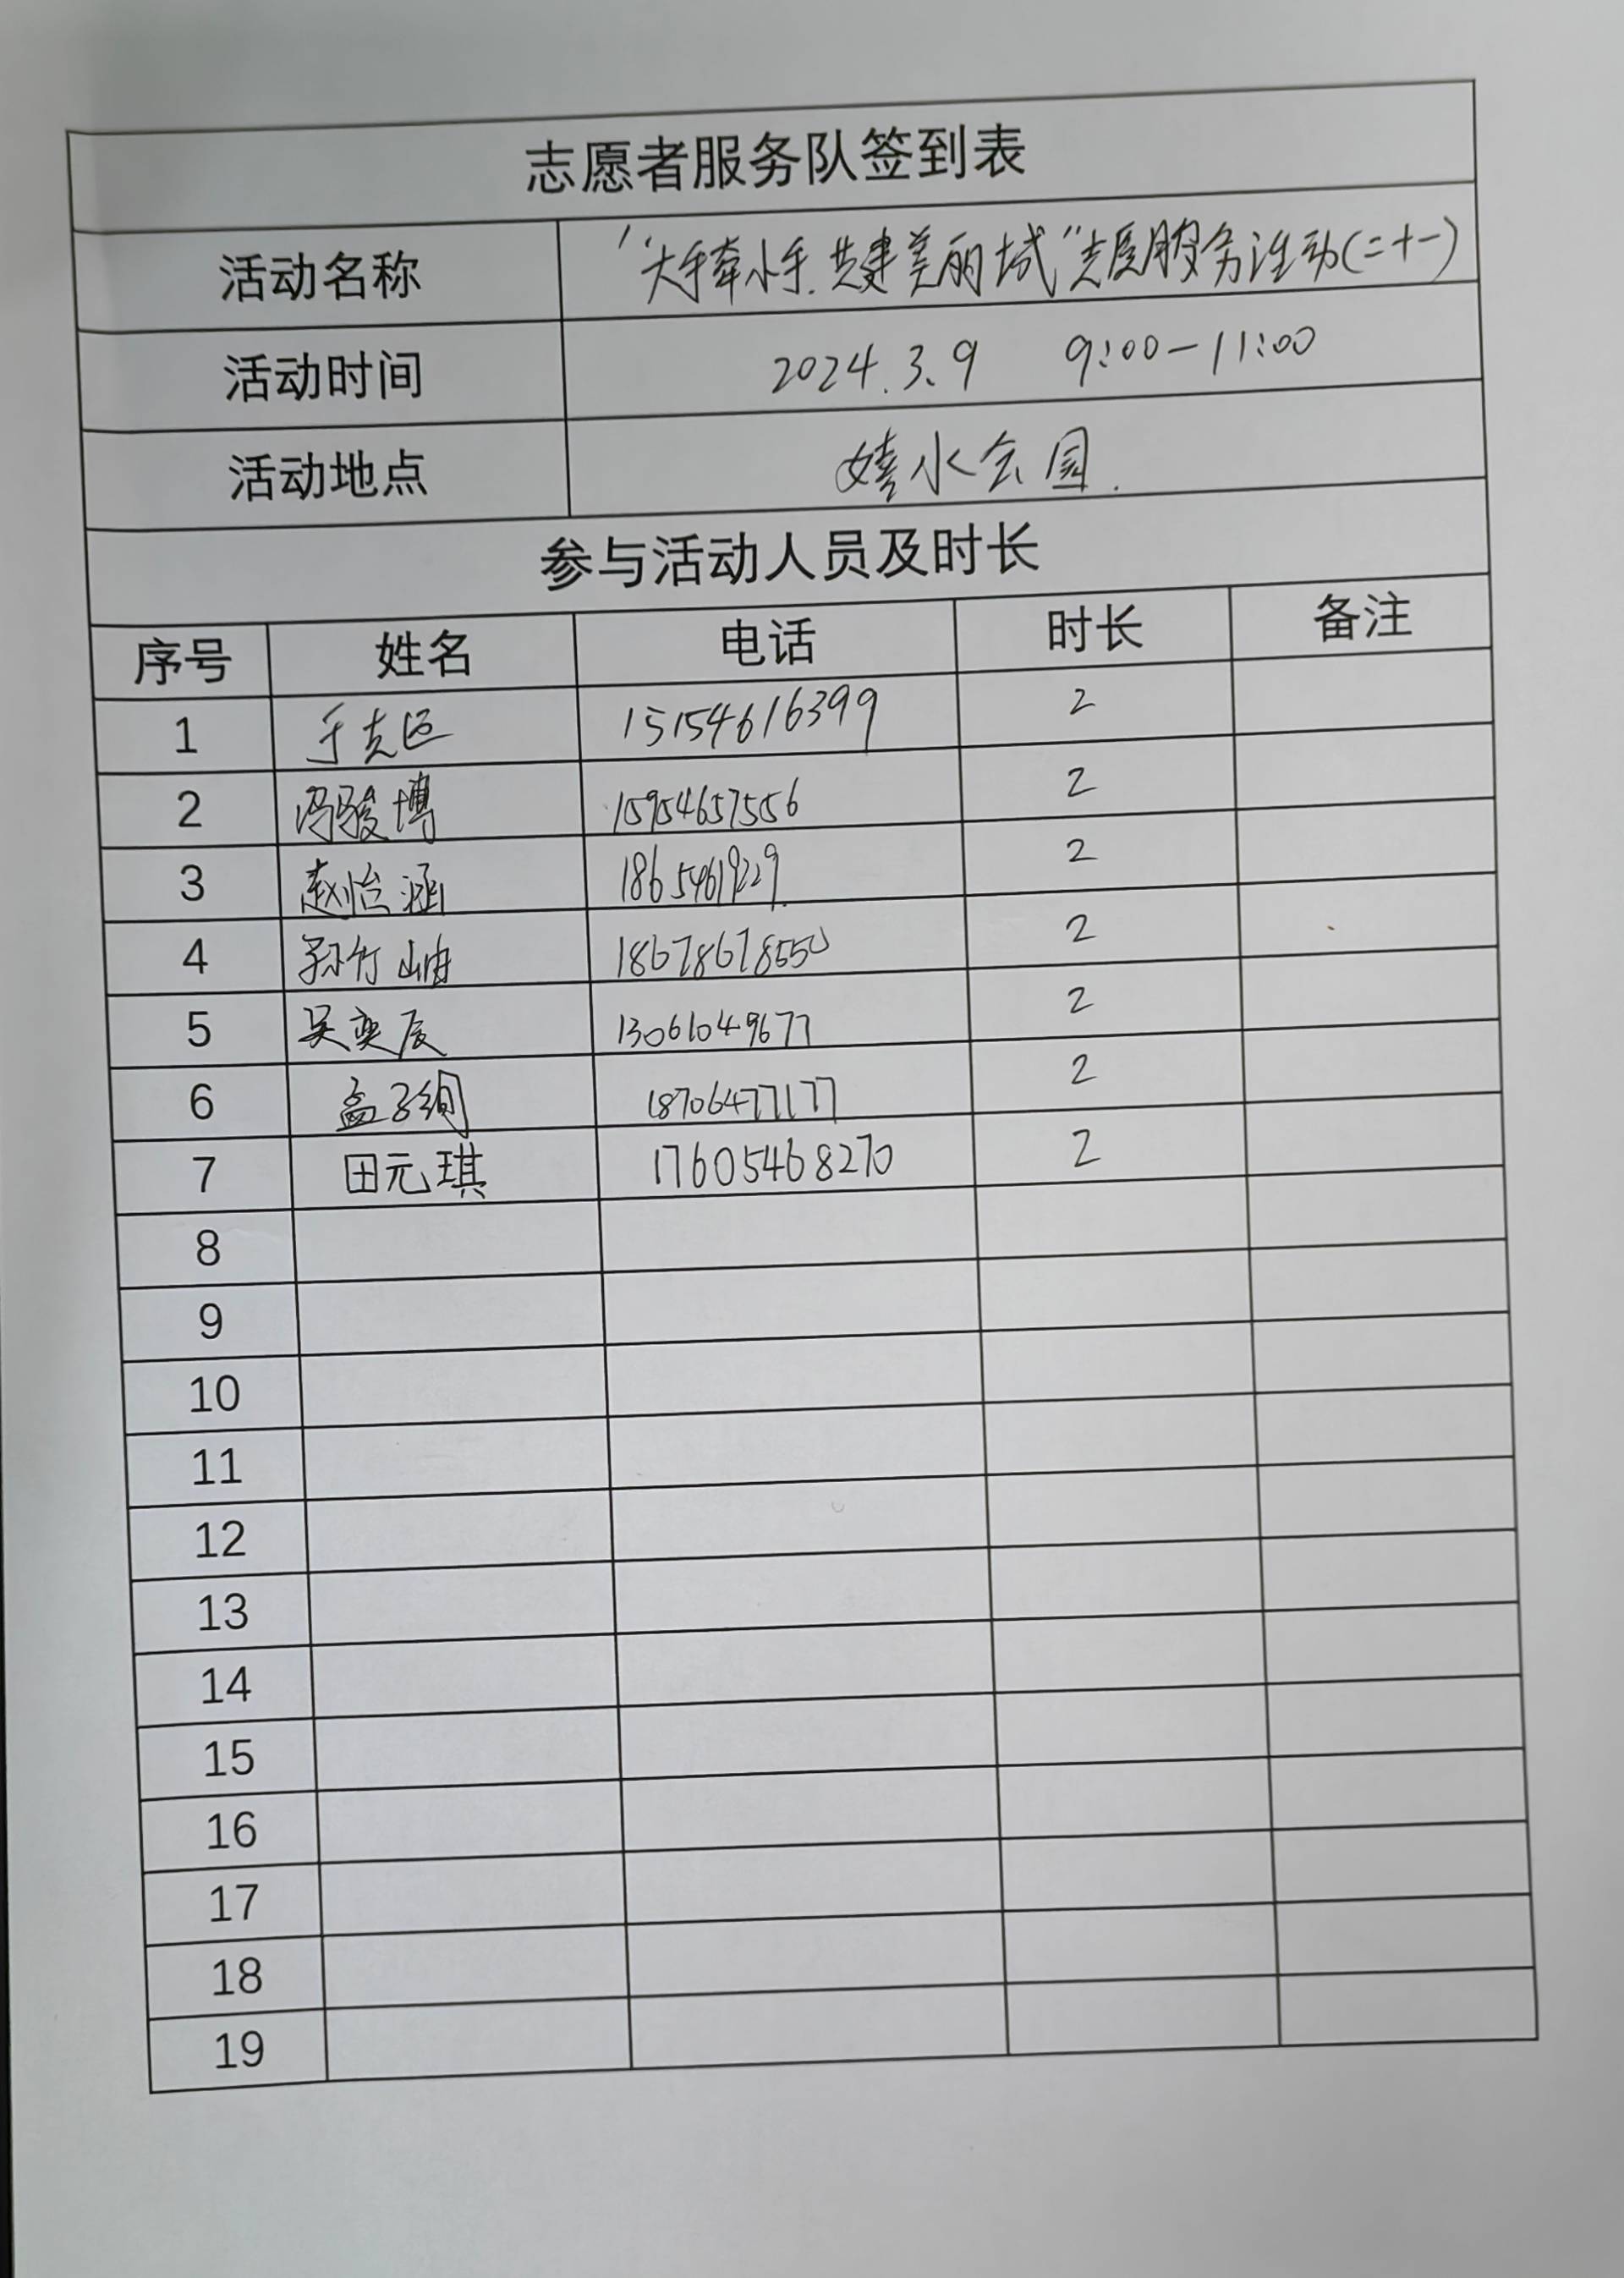 志愿者服务队签到表
活动名称 "大手牵小手.共建美丽城"志愿服务活动(二十一)
活动时间 2024.3.9 9:00-11:00
活动地点 嬉水公园.
参与活动人员及时长
序号 姓名 电话 时长 备注
1 于克 15154616399 2
2 冯骏博 15954657556 2
3 赵怡涵 2
4 孙竹岫 18678678550 2
5 吴奕辰 13061049677 2
6 孟子绚 18706477177 2
7 田元琪 17605468270 2
8
9
10
11
12
13
14
15
16
17
18
19